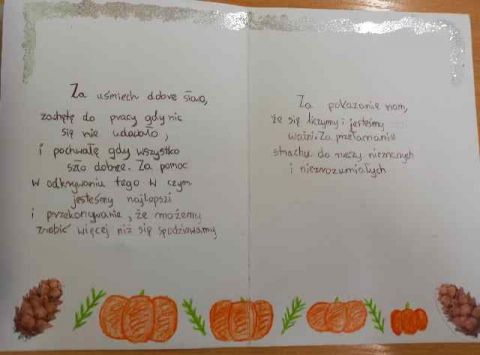 Za uśmiech dobre słowo,
zachętę do pracy gdy nic
się nie udawało,
i pochwałę gdy wszystko
szło dobrze. Za pomoc
w odkrywaniu tego w czym
jesteśmy najlepsi
i przekonywanie, że możemy
zrobić więcej niż się spodziewamy
Za pokazanie nam,
że się liczymy i jesteśmy
ważni. Za przełamanie
strachu do rzeczy nieznanych
i niezrozumiałych